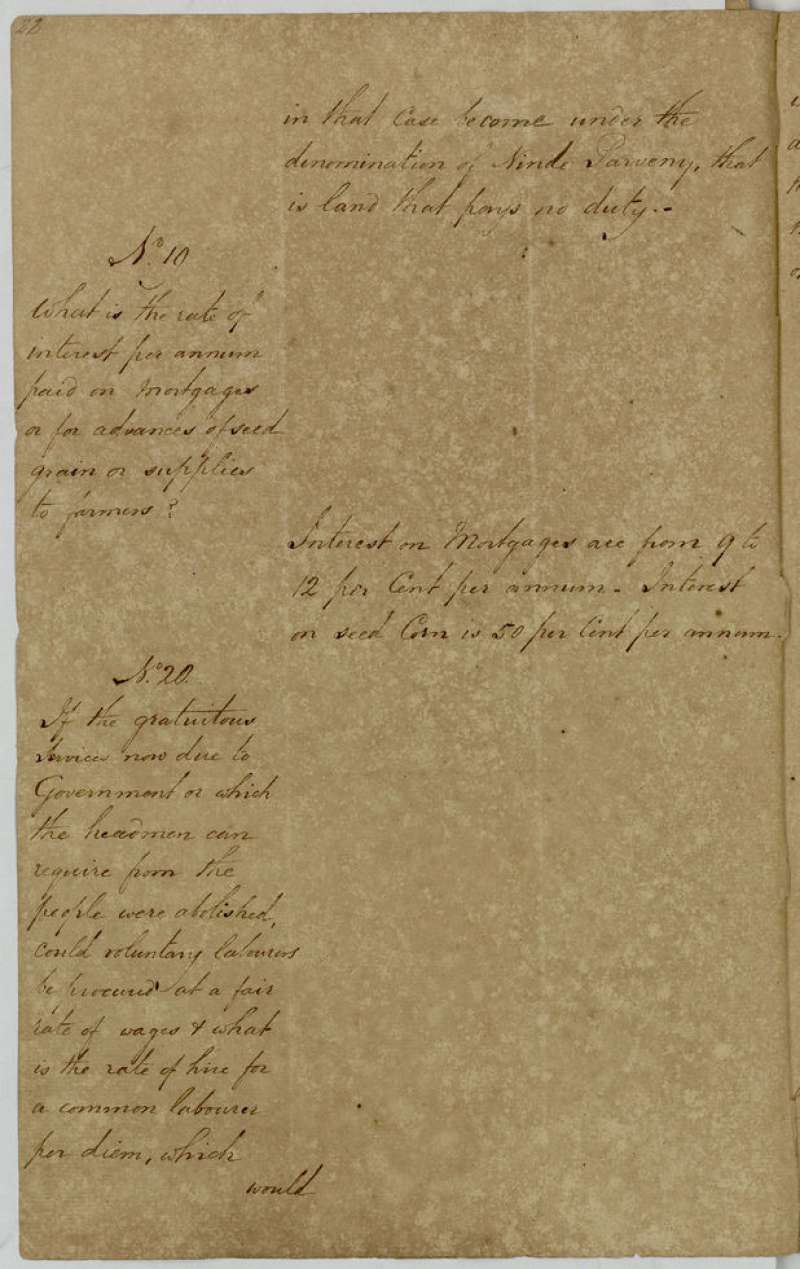 22
in that Case become under the
denomination of Ninde Parveny, that
is land that pays no duty.-
No. 10
What is the rate of
interest per annum
paid on Mortgages
or for advances of seed
grain or supplies
to farmers?
Interest on Mortgages are from 9 to
12 per Cent per annum. Interest
on seed Corn is 50 per Cent per annum.
No. 20.
If the gratuitous
Services now due to
Government or which
the headmen can
require from the
people were abolished,
could voluntary labourers
be procured at a fair
rate of wages & what
is the rate of hire for
a common labourer
per diem, which
would